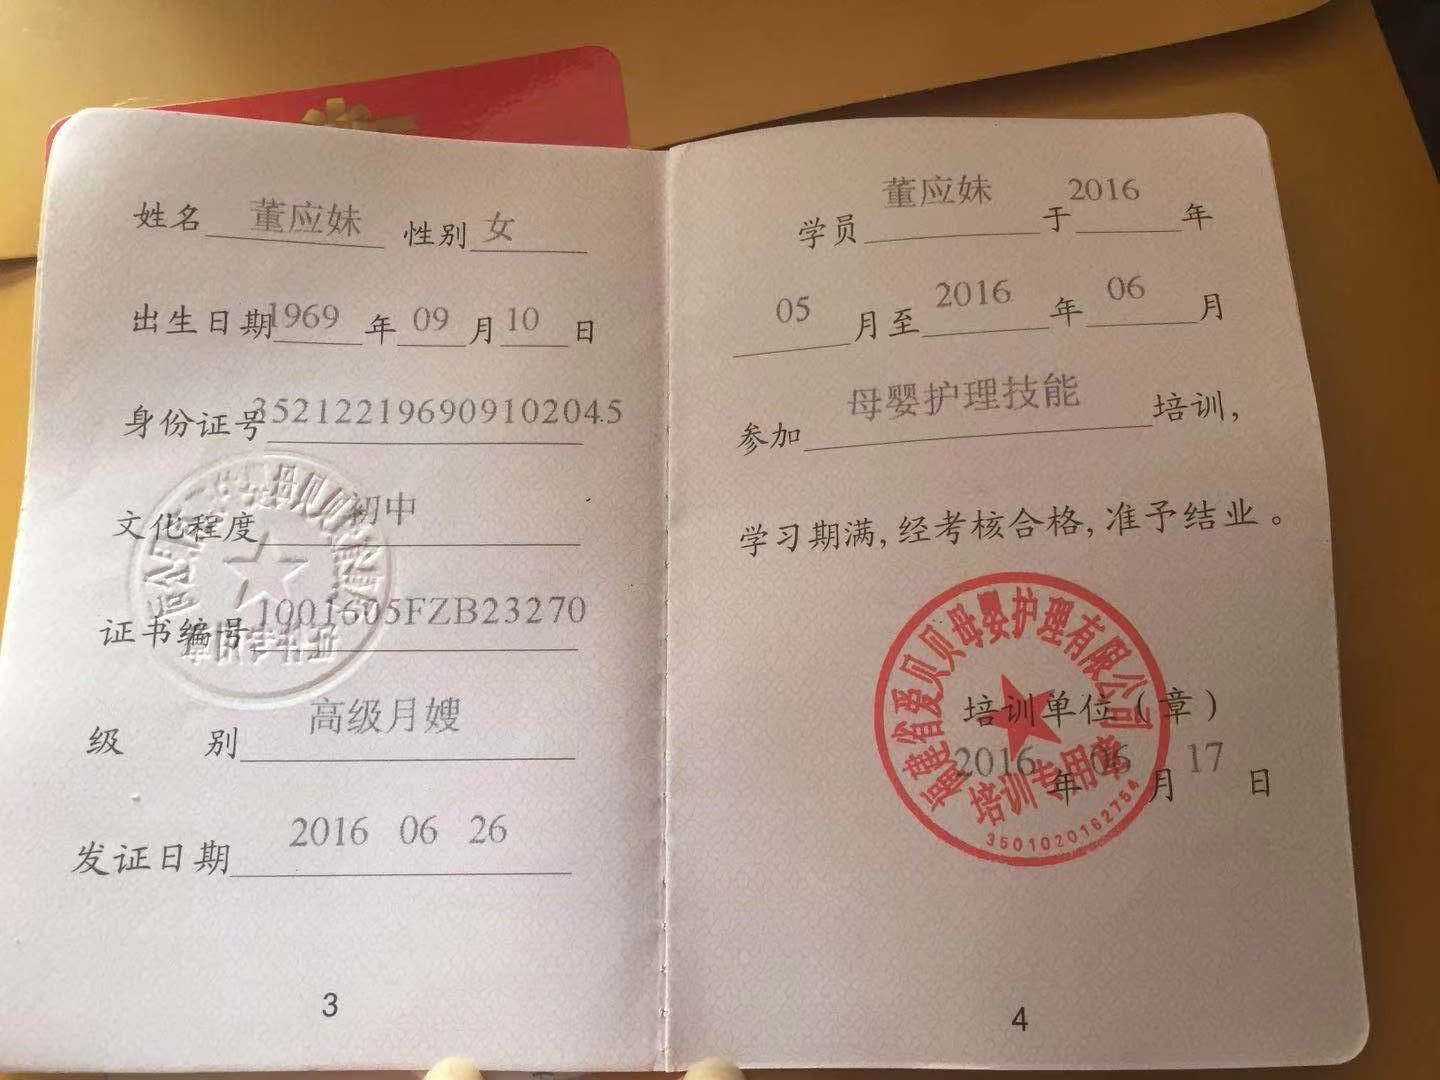 姓名 董应妹 性别 女
出生日期 1969 年 09 月 10 日
身份证号 352122196909102045
文化程度 初中
证书编号 1001605FZB23270
级 别 高级月嫂
发证日期 2016 06 26
3
学员 董应妹 于 2016 年
05 月至 2016 年 06 月
参加 母婴护理技能 培训,
学习期满,经考核合格,准予结业。
福建省爱贝贝母婴护理有限公司
培训单位(章)
2016 年 06 月 17 日
培训专用章
3501020162754
4